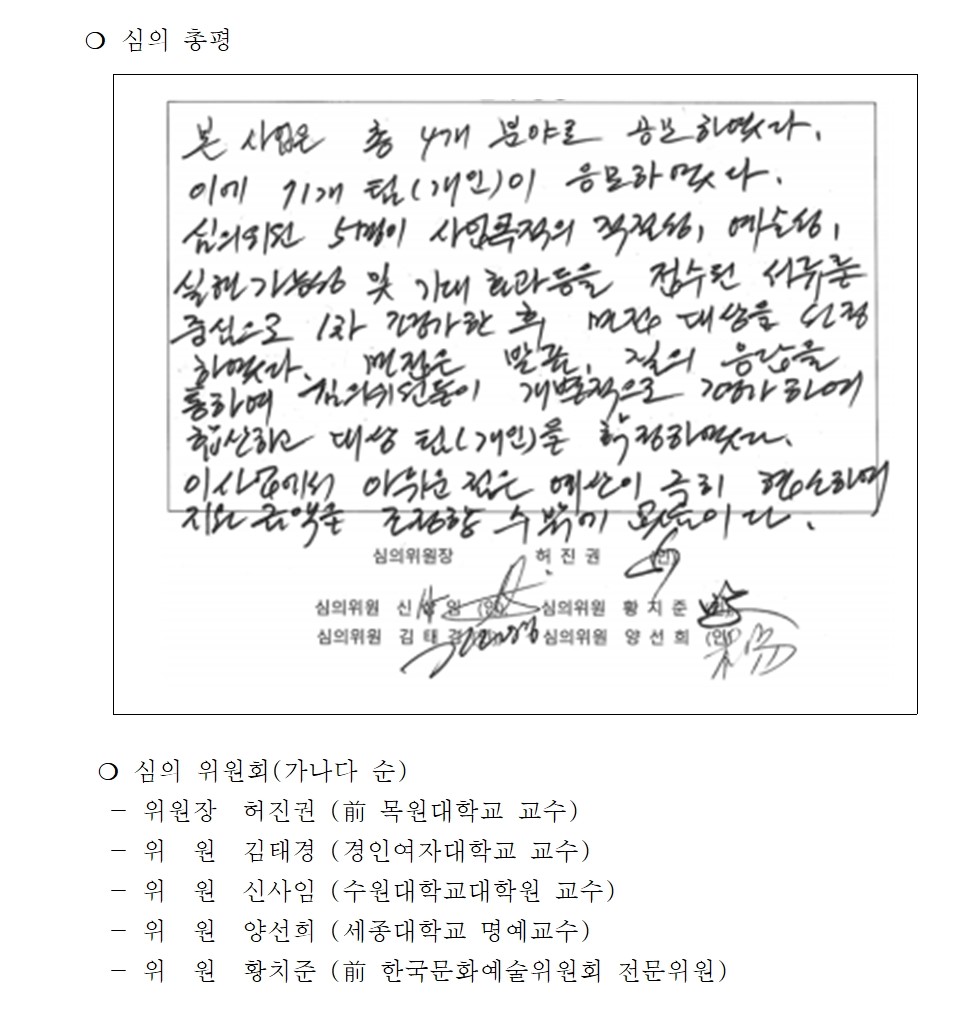 ❍ 심의 총평
본 사업은 총 4개 분야로 공모하였다.
이에 71개 팀(개인)이 응모하였다.
심의위원 5명이 사업목적의 적절성, 예술성,
실현가능성 및 기대효과등을 접수된 서류를
중심으로 1차 평가한 후 면접 대상을 선정
하였다. 면접은 발표, 질의 응답을
통하여 심의위원들이 개별적으로 평가하여
합산하고 대상 팀(개인)을 확정하였다.
이사업에서 아쉬운 점은 예산이 극히 협소하여
지원금액을 조정할 수밖에 이다.
심의위원장 허진권 (인)
심의위원 신 임 (인) 심의위원 황치준
심의위원 김태경 심의위원 양선희 (인)
❍ 심의 위원회(가나다 순)
- 위원장 허진권 (前 목원대학교 교수)
- 위 원 김태경 (경인여자대학교 교수)
- 위 원 신사임 (수원대학교대학원 교수)
- 위 원 양선희 (세종대학교 명예교수)
- 위 원 황치준 (前 한국문화예술위원회 전문위원)